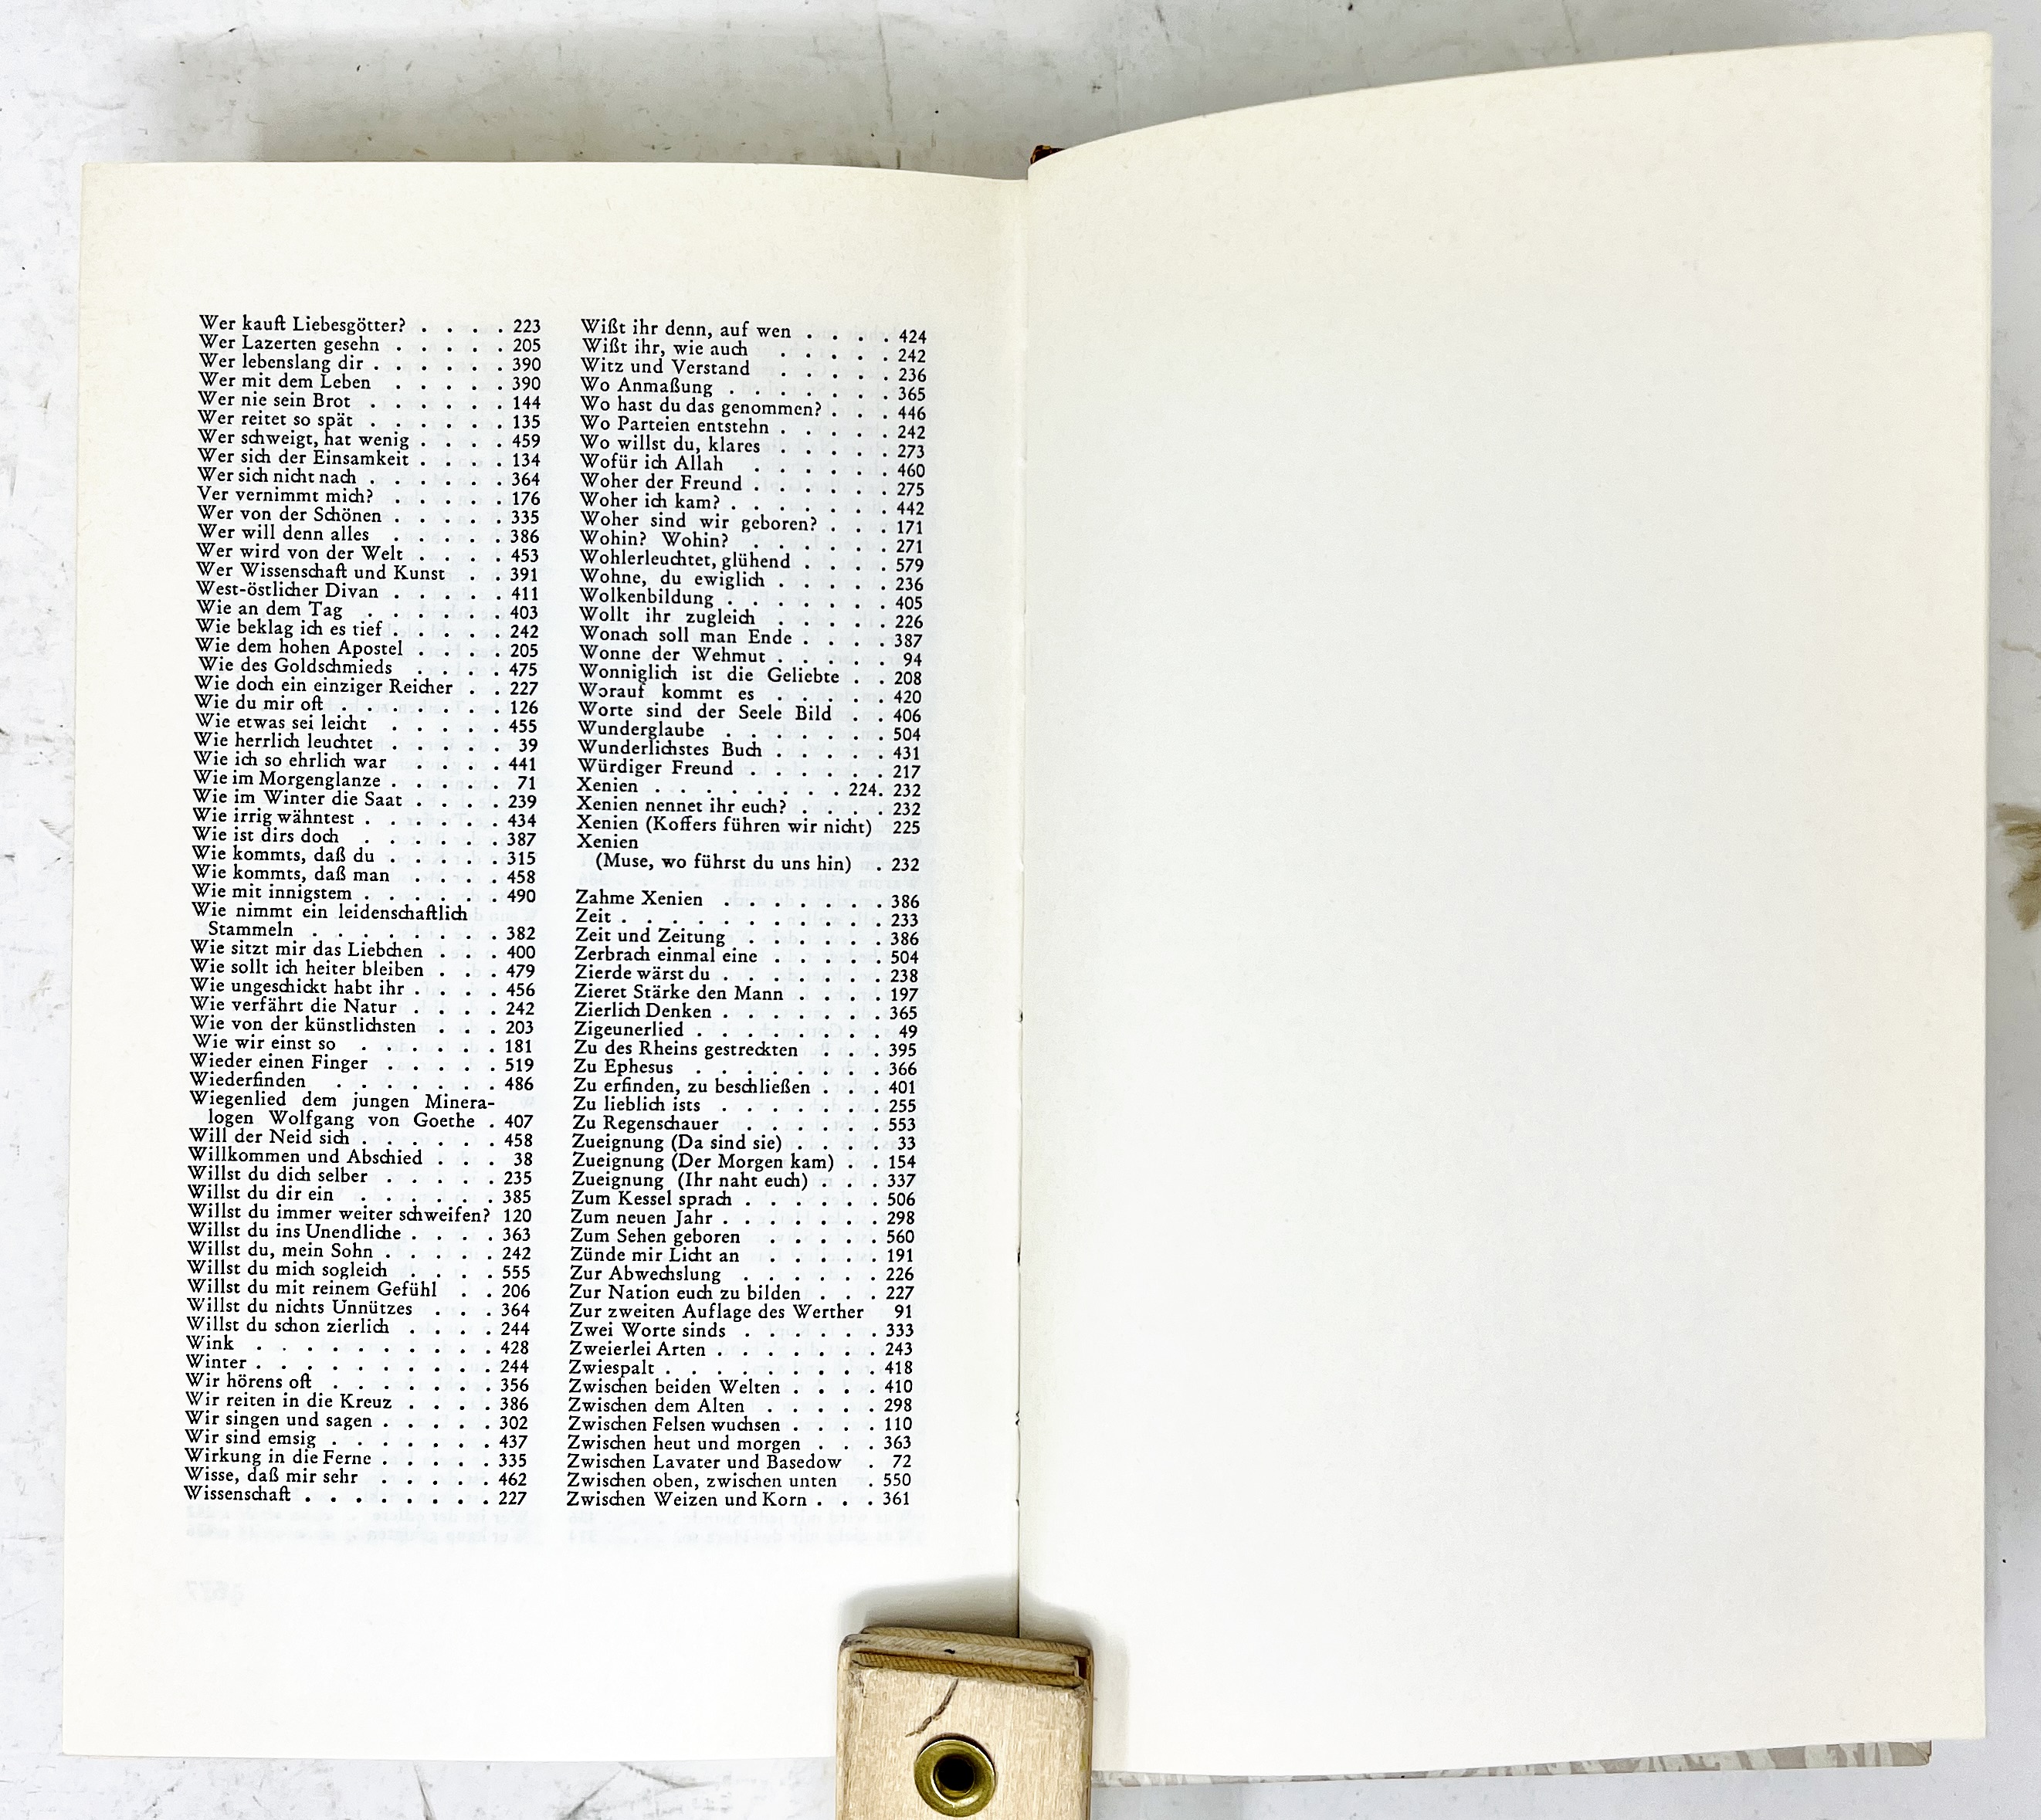 Wer kauft Liebesgötter? . . . . 223
Wer Lazerten gesehn . . . . . 205
Wer lebenslang dir . . . . . . 390
Wer mit dem Leben . . . . . 390
Wer nie sein Brot . . . . . . 144
Wer reitet so spät . . . . . . 135
Wer schweigt, hat wenig . . . . 459
Wer sich der Einsamkeit . . . . 134
Wer sich nicht nach . . . . . . 364
Ver vernimmt mich? . . . . . 176
Wer von der Schönen . . . . . 335
Wer will denn alles . . . . . 386
Wer wird von der Welt . . . . 453
Wer Wissenschaft und Kunst . . 391
West-östlicher Divan . . . . . 411
Wie an dem Tag . . . . . . 403
Wie beklag ich es tief . . . . . 242
Wie dem hohen Apostel . . . . 205
Wie des Goldschmieds . . . . 475
Wie doch ein einziger Reicher . . 227
Wie du mir oft . . . . . . . 126
Wie etwas sei leicht . . . . . 455
Wie herrlich leuchtet . . . . . 39
Wie ich so ehrlich war . . . . 441
Wie im Morgenglanze . . . . . 71
Wie im Winter die Saat . . . . 239
Wie irrig wähntest . . . . . . 434
Wie ist dirs doch . . . . . . 387
Wie kommts, daß du . . . . . 315
Wie kommts, daß man . . . . 458
Wie mit innigstem . . . . . . 490
Wie nimmt ein leidenschaftlich
Stammeln . . . . . . . . 382
Wie sitzt mir das Liebchen . . . 400
Wie sollt ich heiter bleiben . . . 479
Wie ungeschickt habt ihr . . . . 456
Wie verfährt die Natur . . . . 242
Wie von der künstlichsten . . . 203
Wie wir einst so . . . . . . 181
Wieder einen Finger . . . . . 519
Wiederfinden . . . . . . . 486
Wiegenlied dem jungen Minera-
logen Wolfgang von Goethe . 407
Will der Neid sich . . . . . . 458
Willkommen und Abschied . . . 38
Willst du dich selber . . . . . 235
Willst du dir ein . . . . . . 385
Willst du immer weiter schweifen? 120
Willst du ins Unendliche . . . . 363
Willst du, mein Sohn . . . . . 242
Willst du mich sogleich . . . . 555
Willst du mit reinem Gefühl . . 206
Willst du nichts Unnützes . . . 364
Willst du schon zierlich . . . . 244
Wink . . . . . . . . . . 428
Winter . . . . . . . . . . 244
Wir hörens oft . . . . . . . 356
Wir reiten in die Kreuz . . . . 386
Wir singen und sagen . . . . . 302
Wir sind emsig . . . . . . . 437
Wirkung in die Ferne . . . . . 335
Wisse, daß mir sehr . . . . . 462
Wissenschaft . . . . . . . . 227
Wißt ihr denn, auf wen . . . . 424
Wißt ihr, wie auch . . . . . 242
Witz und Verstand . . . . . 236
Wo Anmaßung . . . . . . . 365
Wo hast du das genommen? . . . 446
Wo Parteien entstehn . . . . . 242
Wo willst du, klares . . . . . 273
Wofür ich Allah . . . . . . 460
Woher der Freund . . . . . . 275
Woher ich kam? . . . . . . . 442
Woher sind wir geboren? . . . 171
Wohin? Wohin? . . . . . . 271
Wohlerleuchtet, glühend . . . . 579
Wohne, du ewiglich . . . . . 236
Wolkenbildung . . . . . . . 405
Wollt ihr zugleich . . . . . 226
Wonach soll man Ende . . . . 387
Wonne der Wehmut . . . . . 94
Wonniglich ist die Geliebte . . 208
Worauf kommt es . . . . . 420
Worte sind der Seele Bild . . 406
Wunderglaube . . . . . . . 504
Wunderlichstes Buch . . . . . 431
Würdiger Freund . . . . . . 217
Xenien . . . . . . . . 224. 232
Xenien nennet ihr euch? . . . . 232
Xenien (Koffers führen wir nicht) 225
Xenien
(Muse, wo führst du uns hin) . 232
Zahme Xenien . . . . . . . 386
Zeit . . . . . . . . . . . 233
Zeit und Zeitung . . . . . . 386
Zerbrach einmal eine . . . . . 504
Zierde wärst du . . . . . . . 238
Zieret Stärke den Mann . . . . 197
Zierlich Denken . . . . . . . 365
Zigeunerlied . . . . . . . . 49
Zu des Rheins gestreckten . . . 395
Zu Ephesus . . . . . . . . 366
Zu erfinden, zu beschließen . . . 401
Zu lieblich ists . . . . . . . 255
Zu Regenschauer . . . . . . 553
Zueignung (Da sind sie) . . . . 33
Zueignung (Der Morgen kam) . . 154
Zueignung (Ihr naht euch) . . . 337
Zum Kessel sprach . . . . . . 506
Zum neuen Jahr . . . . . . . 298
Zum Sehen geboren . . . . . 560
Zünde mir Licht an . . . . . 191
Zur Abwechslung . . . . . . 226
Zur Nation euch zu bilden . . . 227
Zur zweiten Auflage des Werther 91
Zwei Worte sinds . . . . . . 333
Zweierlei Arten . . . . . . . 243
Zwiespalt . . . . . . . . . 418
Zwischen beiden Welten . . . . 410
Zwischen dem Alten . . . . . 298
Zwischen Felsen wuchsen . . . . 110
Zwischen heut und morgen . . . 363
Zwischen Lavater und Basedow . 72
Zwischen oben, zwischen unten . 550
Zwischen Weizen und Korn . . . 361